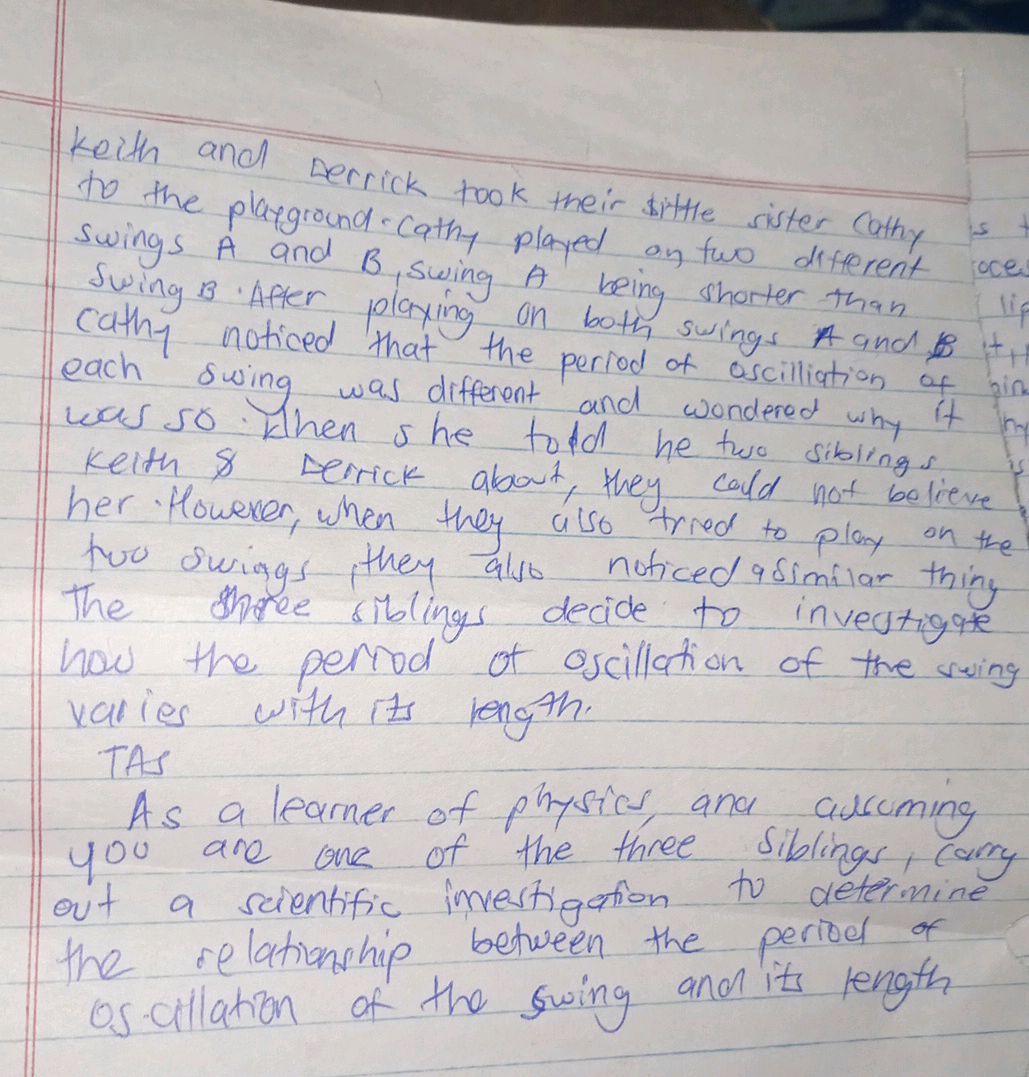 Keith and Derrick took their little sister Cathy
to the playground. Cathy played on two different
swings A and B, swing A being shorter than
swing B. After playing on both swings A and B
Cathy noticed that the period of oscilliation of
each swing was different and wondered why it
was so. When she told he two siblings
Keith & Derrick about, they could not believe
her. However, when they also tried to play on the
two swings, they also noticed a similar thing
The three siblings decide to investigate
how the period of oscillation of the swing
varies with its length.
TAS
As a learner of physics, and assuming
you are one of the three siblings, carry
out a scientific investigation to determine
the relationship between the period of
os-cillation of the swing and its length